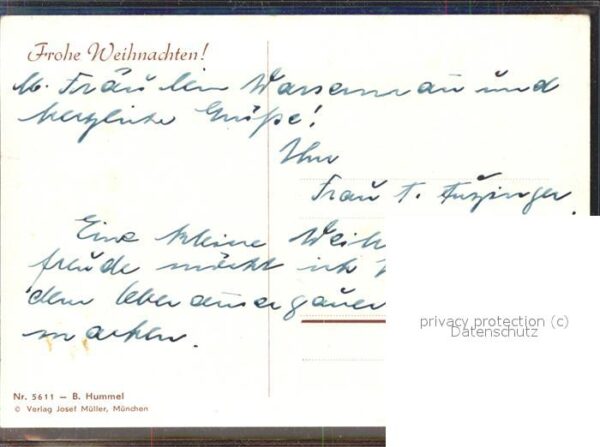 Frohe Weihnachten!
Fräulein Wassermann und
herzliche Grüße!
Ihre
Frau
Eine kleine Weih
freude möcht ich
dem
machen.
privacy protection (c)
Datenschutz
Nr. 5611 — B. Hummel
© Verlag Josef Müller, München